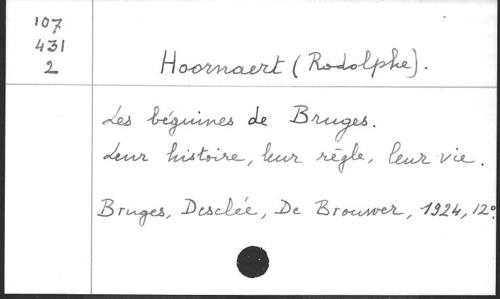 107
431
2
Hoornaert (Rodolphe).
Les béguines de Bruges.
Leur histoire, leur règle, leur vie.
Bruges, Desclée, De Brouwer, 1924, 12º.